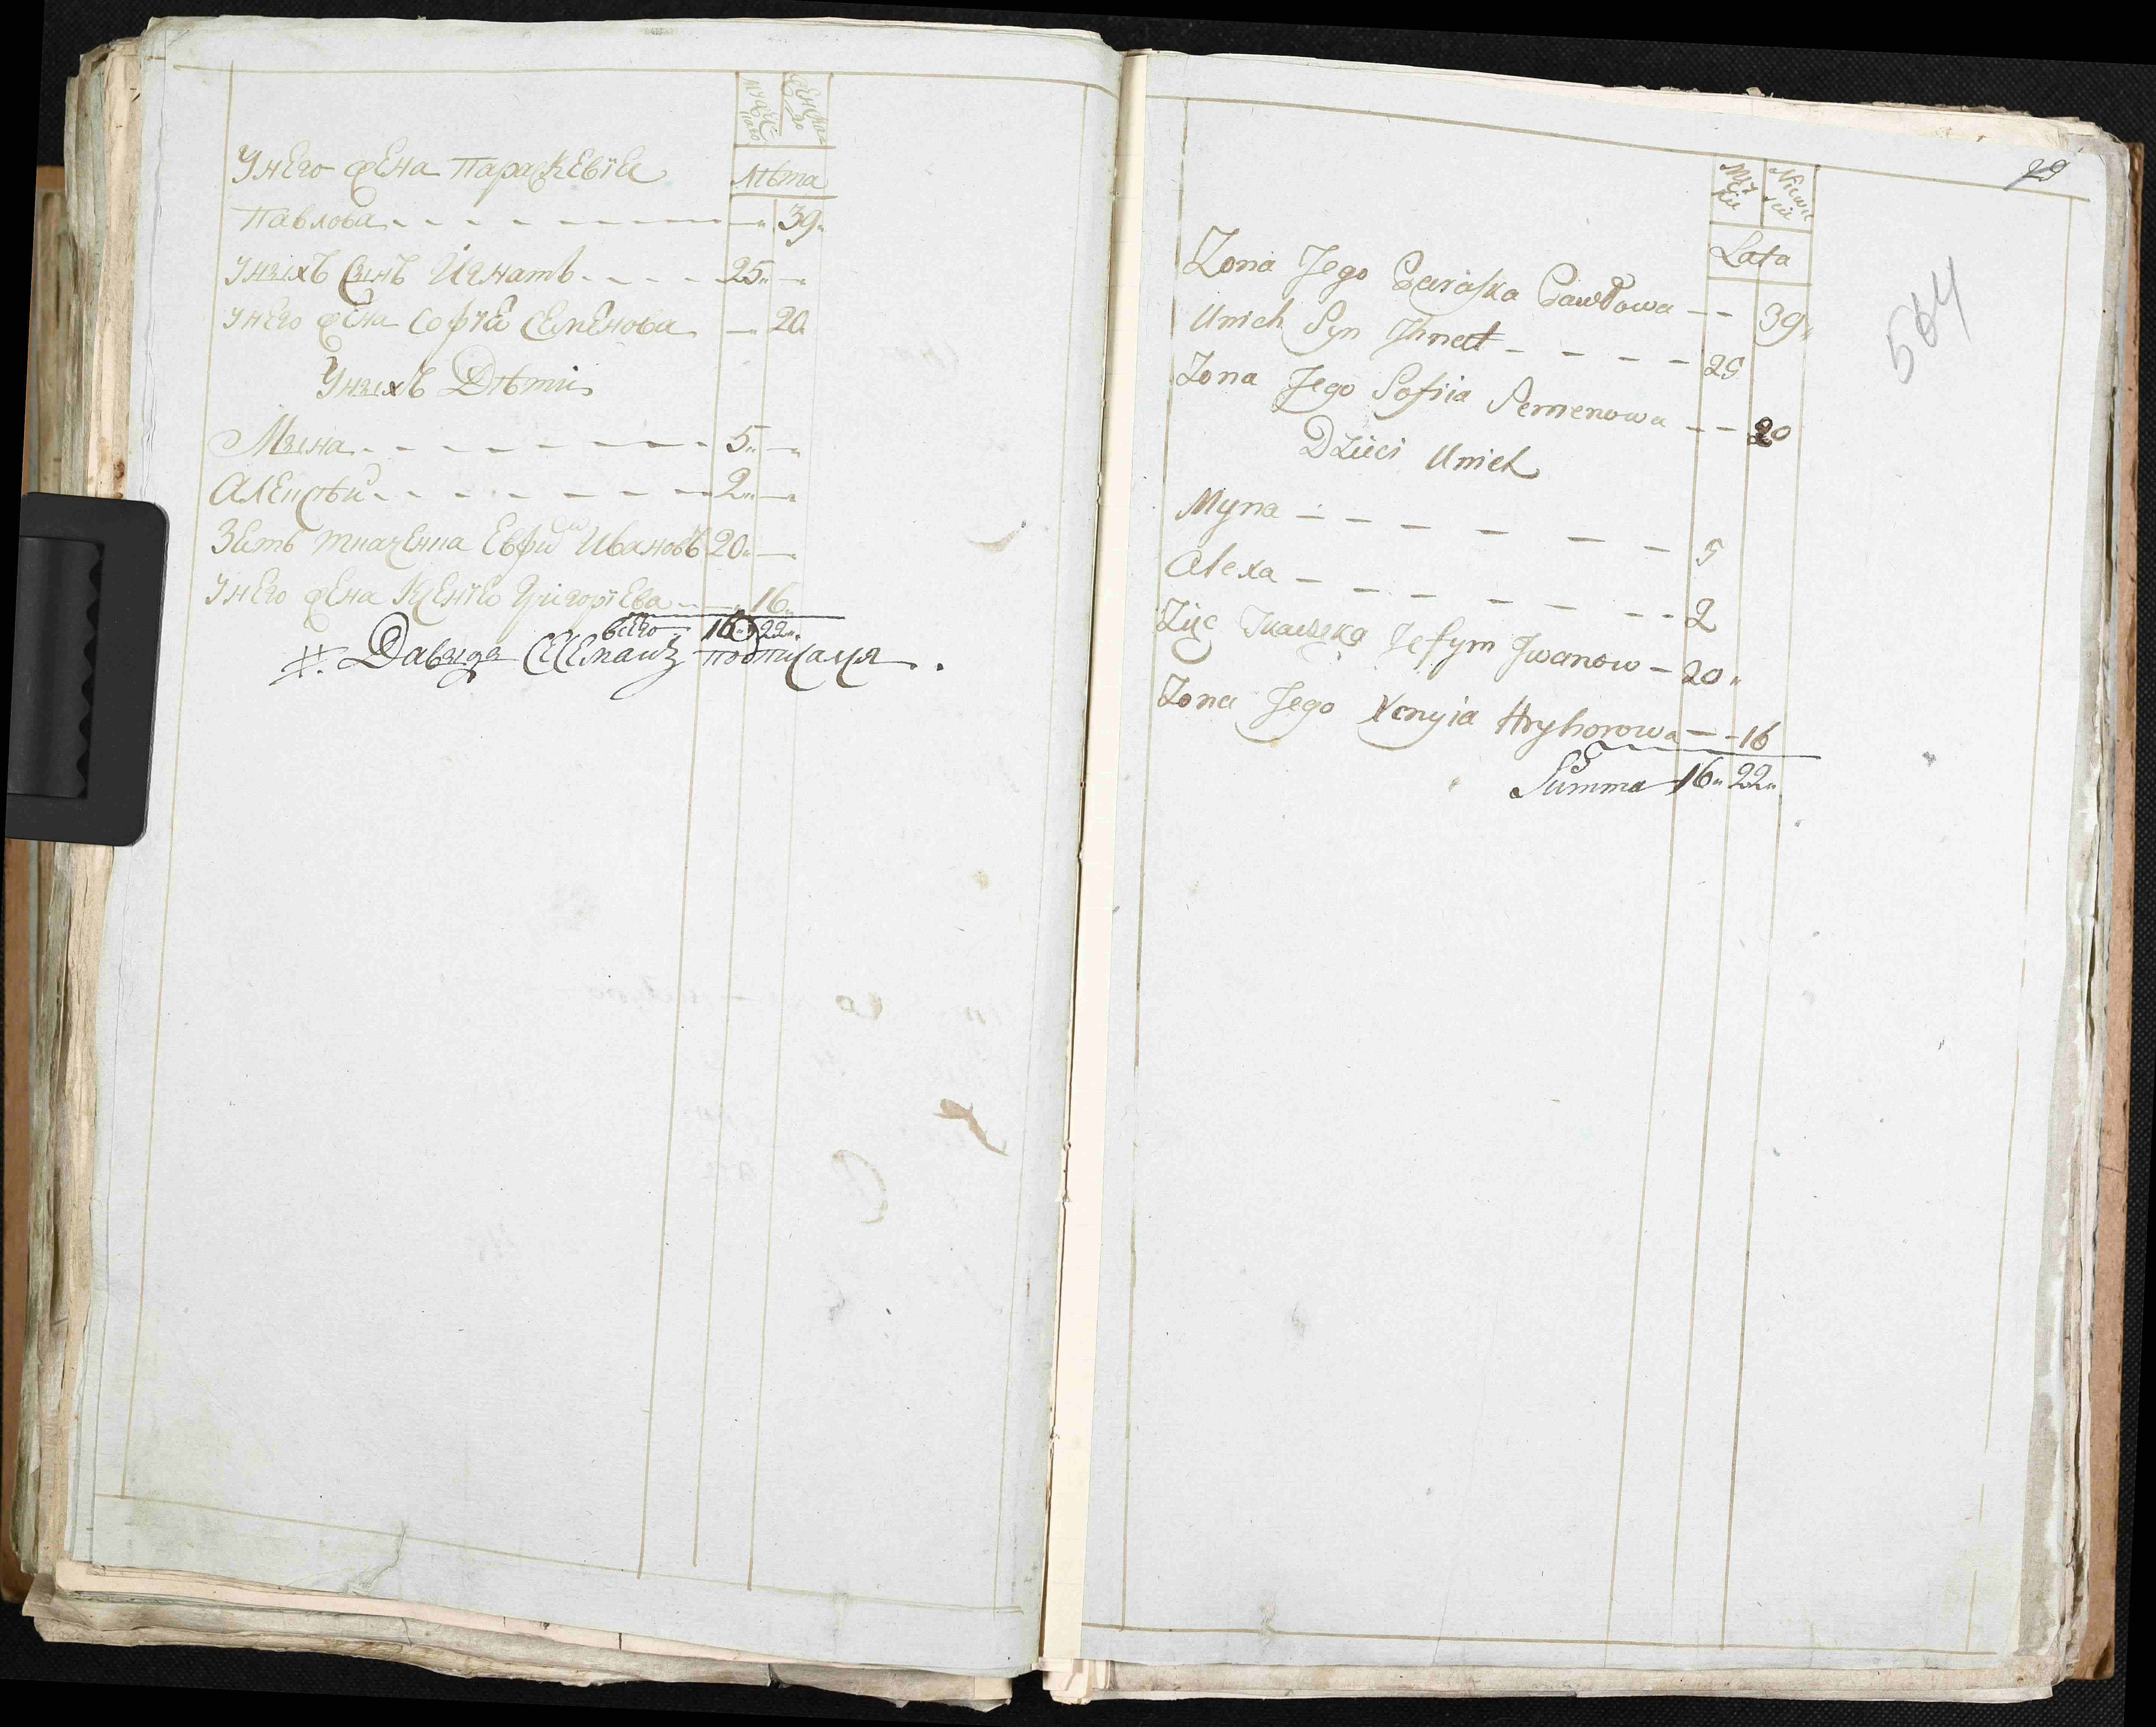 Мужеска Женска
Лѣта
У него жена Параскевіа
Павлова 39
У ныхъ сынъ Игнатъ 25
У него жена Софіа Семенова 20
У ныхъ Дѣти
Мына 5
Алексѣй 2
Зять ткаченка Ефим Ивановъ 20
У него жена Ксеніа Григоріева 16
всего 16 22
Давыда подписался
29
Mę zkie Niewie skie
Lata
564
Zona Jego Paraska Pawłowa 39
Unich Syn Ihnatt 25
Zona Jego Sofiia Semenowa 20
Dzieci Unich
Myna 5
Alexa 2
Zięc Jefym Jwanow 20
Zona Jego Xenyia Hryhorowa 16
Summa 16 22